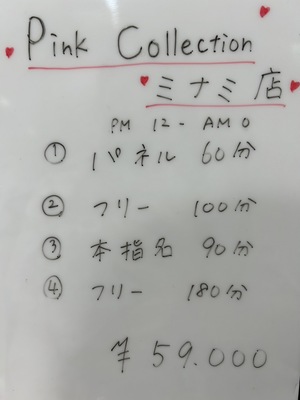 Pink Collection
ミナミ店
PM 12 - AM 0
① パネル 60分
② フリー 100分
③ 本指名 90分
④ フリー 180分
¥59.000